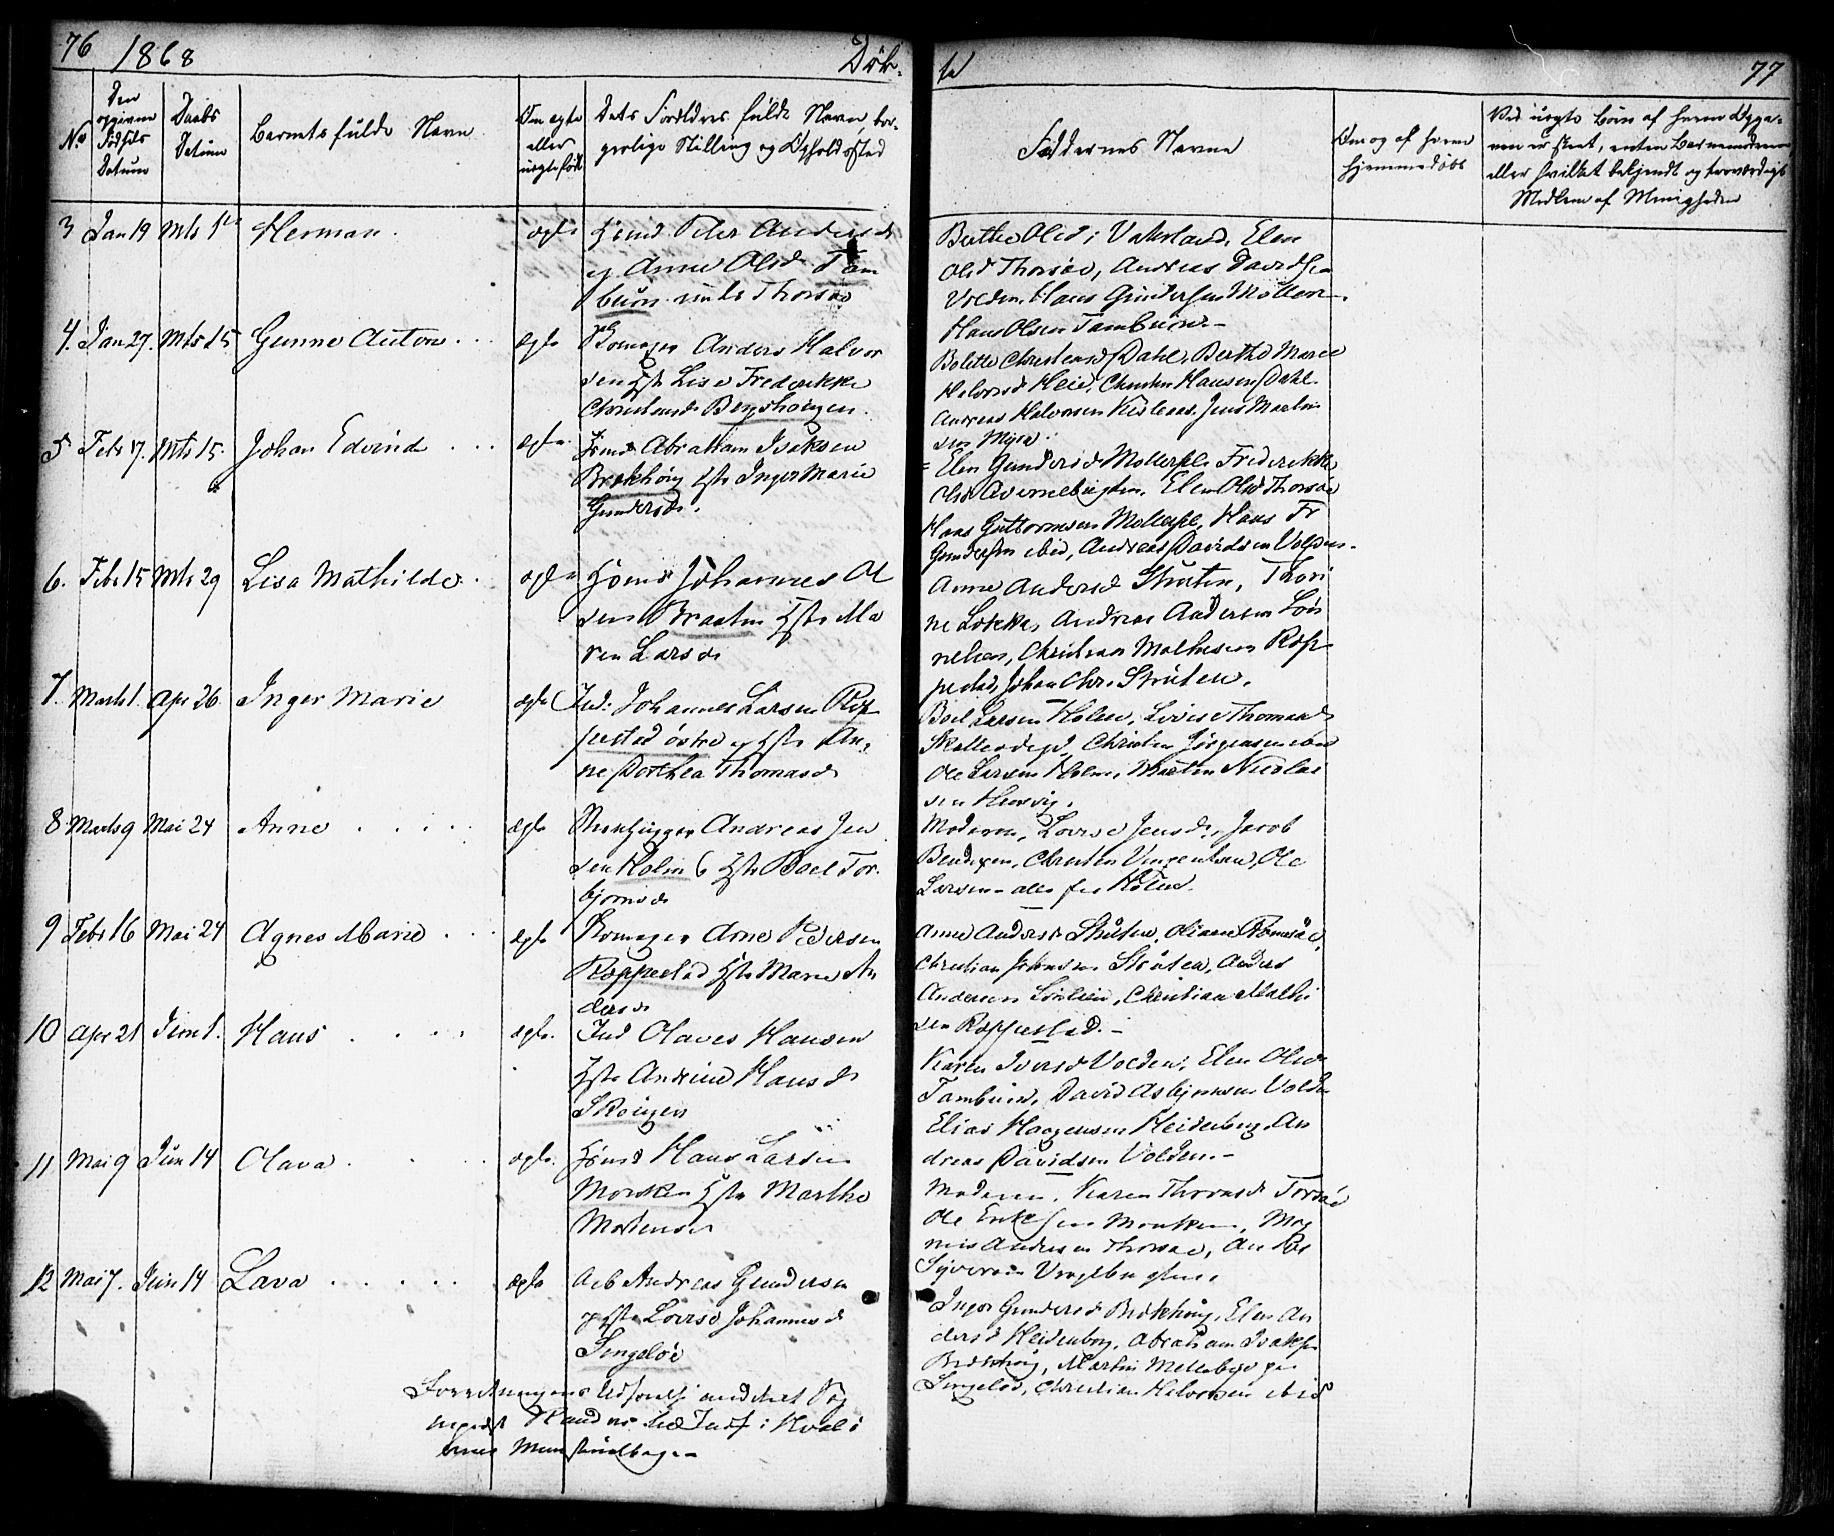 76 1868 Døb-
te 77
No
Den opgivne Fødsels Datum
Daabs Datum
Barnets fulde Navn
Om ægte eller uægte født
Dets Forældres fulde Navn, bor-
gerlige Stilling og Opholdssted
Faddernes Navne
Om og af hvem hjemmedøbt
Ved uægte Børn af hvem Opga-
ven er skeet, enten Barnemoderen
eller hvilket bekjendt og troværdigt
Medlem af Menigheden
3 Jan 19 Mts 1ste Herman. ægte Hsmd Peter Andersen
og Anne Olsd Tam
buen under Thorsøe
Berthe Olsd i Vaterland, Elen
Olsd Thorsøe, Andreas Davidsen
Volden, Hans Gundersen Møllere.
Hans Olsen Tambuen.-
4. Jan 27. Mts 15. Gunne Anton ægte Skomager Anders Halvor
sen Hst Lise Frederikke
Christensd Bergshougen.
Bolette Christensd Dahl, Berthe Marie
Halvorsd Heie, Christen Hansen Dahl
Andreas Halvorsen Jens Martin
sen Myra.
5 Feb 17. Mts 15. Johan Edvind ægte Hsmd Abraham Isaksen
Brækhoug Hst Inger Marie
Gundersd.
Elen Gundersd Frederikke
Olsd Elen Olsd Thorsøe
Hans Guttormsen Hans Fr
Gundersen ibid, Andreas Davidsen Volden.
6. Feb 15 Mts 29 Lisa Mathilde ægte Hsmd Johannes Ol
sen Braaten Hst Ma
ren Larsd
Anne Andersd Struten, Thori
ne Løkka, Andreas Andersen Løv
Christian Mathisen Rop
pestad, Johan Chr. Struten.
7. Marts 1. Apr 26 Inger Marie ægte Ind: Johannes Larsen Rop
pestad østre og Hst An-
ne Dorthea Thomasd
Boel Larsen Holm, Lovise Thomasd
Christen Jørgensen ibid
Ole Larsen Holm, Martin Nicolai
sen
8 Marts 9 Mai 24 Anne ægte Andreas Jen
sen Holm Hst Boel Tor-
bjørnsd
Moderen, Lovise Jensd, Jacob
Bendixen, Christen Vincentsen, Ole
Larsen alle fra Holm.
9 Feb 16 Mai 24 Agnes Marie ægte Skomager Arne Pedersen
Roppestad Hst Marie An
dersd
Anne Andersd Struten, Oliane
Christian Johnsen Struten, Anders
Andersen Christian Mathi
sen Roppestad.-
10 Apr 21 Juni 1. Hans ægte. Ind Olaves Hansen
Hst Andrine Hansd
Skougen
Karen Iversd Volden, Elen Olsd
Tambuen, David Asbjørnsen Volden
Elias Haagensen Heidenberg An
dreas Davidsen Volden.-
11 Mai 9 Jun 14 Olava. ægte. Hsmd Hans Larsen
Monken Hst Marthe
Mortensd
Moderen, Karen Thoresd Torsøe
Ole Eriksen Monken, Mag
nus Andersen Thorsøe,
Syversen
12 Mai 7. Jun 14 Lava ægte Arb Andreas Gundersen
og Hst Lovise Johannesd
Sengeløe
Inger Gundersd Brækhoug, Elen An
dersd Heidenberg, Abraham Isaksen
Brækhoug, Martin
Sengeløe, Christian Halvorsen ibid